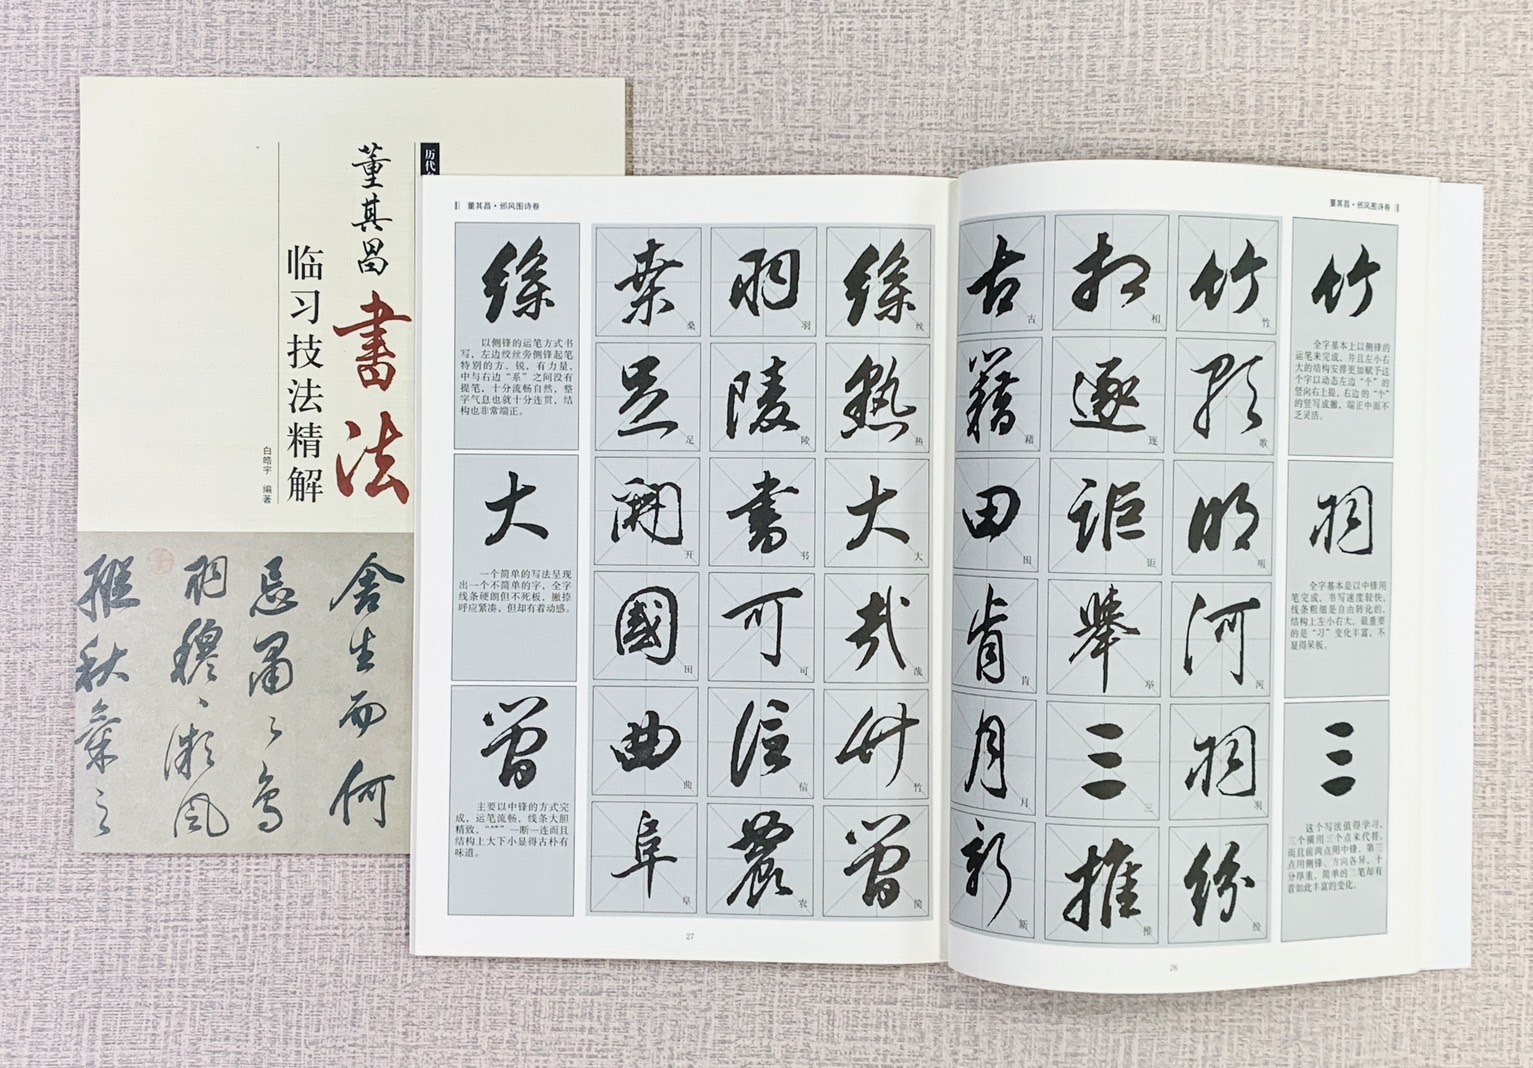 历代
董其昌
書法
临习技法精解
白皓宇 编著
舍生而何
忌 鸟
羽穆、凉风
推秋 之
董其昌·邠风图诗卷
竹
全字基本上以侧锋的
运笔来完成，并且左小右
大的结构安排更加赋予这
个字以动态左边“个”的
竖向右上提，右边的“个”
的竖写成撇，端正中而不
乏灵活。
全字基本是以中锋用
笔完成，书写速度较快，
线条粗细是自由转化的，
结构上左小右大，最重要
的是“习”变化丰富，不
显得呆板。
三
这个写法值得学习，
三个横用三个点来代替，
而且前两点用中锋，第三
点用侧锋、方向各异，十
分厚重，简单的三笔却有
着如此丰富的变化。
竹 竹
歌 歌
明
河 河
羽 羽
纷
相 相
逐 逐
讵
舉 举
三 三
推
古 古
籍
田 田
肯 肯
月 月
新 新
26
董其昌·邠风图诗卷
絲 丝
热 热
大 大
哉
竹 竹
羽 羽
陵 陵
書 书
可 可
信 信
農 农
桑 桑
足 足
開 开
國 国
曲 曲
阜 阜
絲
以侧锋的运笔方式书
写，左边绞丝旁侧锋起笔
特别的方、锐，有力量，
中与右边“系”之间没有
提笔，十分流畅自然，整
字气息也就十分连贯，结
构也非常端正。
大
一个简单的写法呈现
出一个不简单的字，全字
线条硬朗但不死板，撇捺
呼应紧凑，但却有着动感。
主要以中锋的方式完
成，运笔流畅，线条大胆
精致， 一断一连而且
结构上大下小显得古朴有
味道。
27